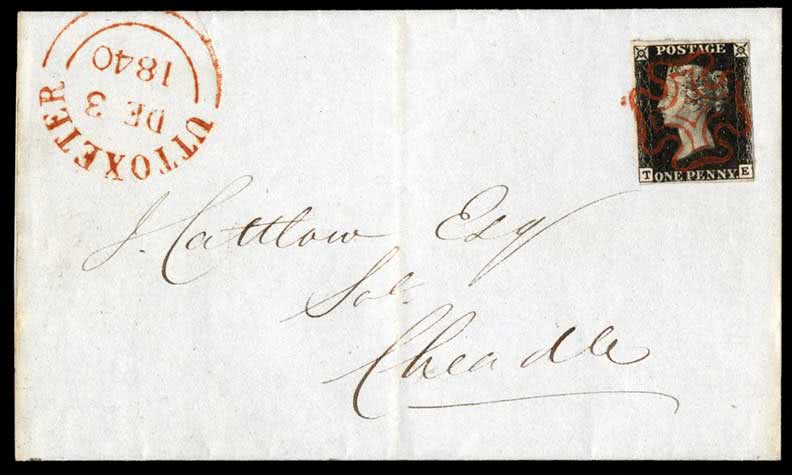 UTTOXETER
DE 3
1840
POSTAGE
T E
ONE PENNY
J. Cattlow Esq
Solr
Cheadle